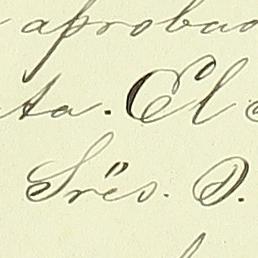 aprobad
ta. El
Srës. D.